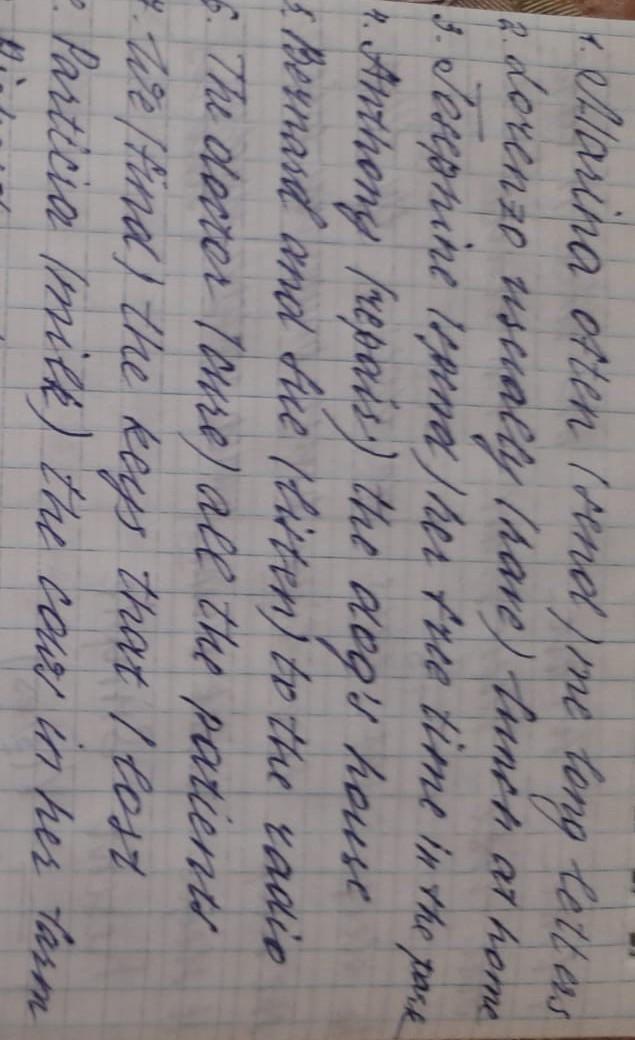 1. Marina often (send) me long letters
2. Lorenzo usually (have) lunch at home
3. Josephine (spend) her free time in the park
4. Anthony (repair) the dog's house
5. Bernard and Sue (listen) to the radio
6. The doctor (cure) all the patients
7. We (find) the keys that I lost
Particia (milk) the cows in her farm